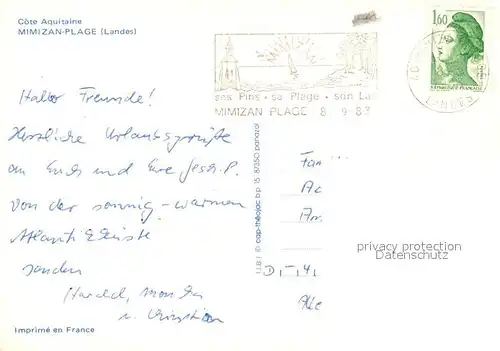 Côte Aquitaine
MIMIZAN-PLAGE (Landes)
1,60
REPUBLIQUE FRANÇAISE
LANDES
ses Pins • sa Plage • son La
MIMIZAN PLAGE 8 9 83
Hallo Freunde!
Herzliche Urlaubsgrüße
an Euch und Eure gesch. P.
von der sonnig-warmen
Atlantikküste
senden
Harald, Monika
u. Christian
I.J.B.I © cap-théojac b.p. 15 87350 panazol
Fam
privacy protection
Datenschutz
Imprimé en France